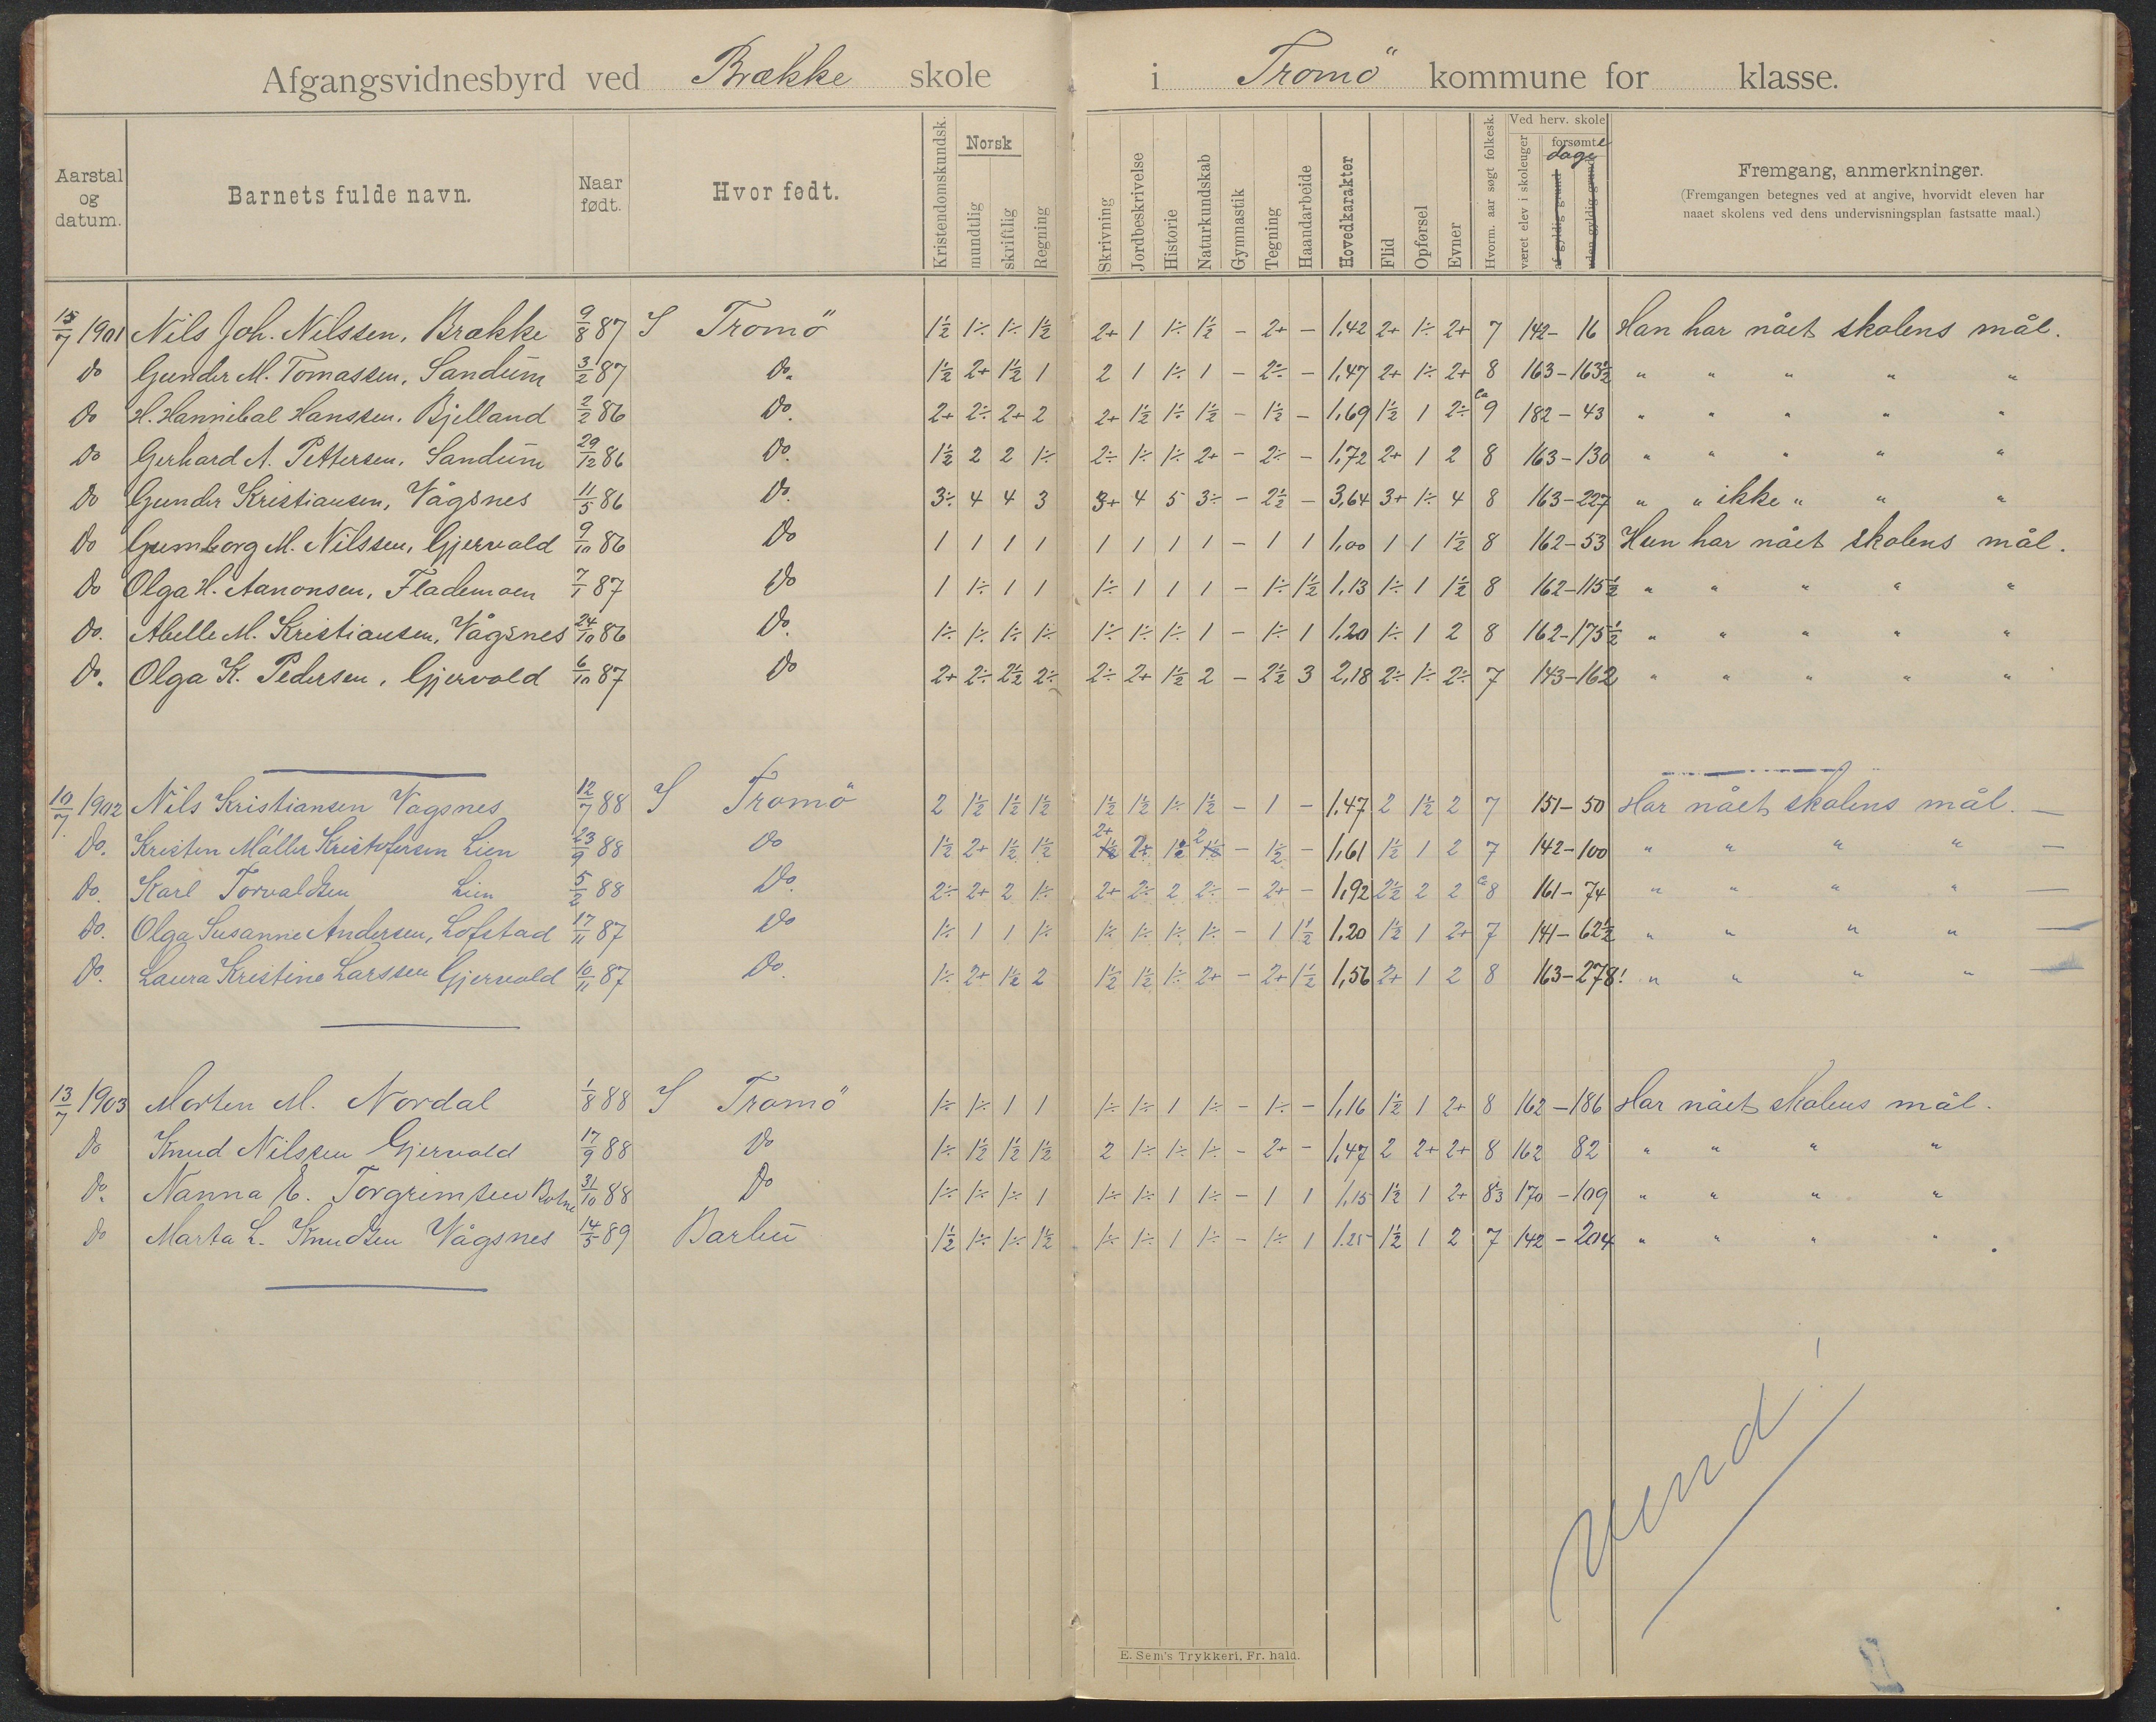 Afgangsvidnesbyrd ved Brække skole i Tromö kommune for klasse.
Aarstal og datum. Barnets fulde navn. Naar født. Hvor født. Kristendomskundsk. Norsk mundtlig skriftlig Regning Skrivning Jordbeskrivelse Historie Naturkundskab Gymnastik Tegning Haandarbeide Hovedkarakter Flid Opførsel Evner Hvorm. aar søgt folkesk. Ved herv. skole været elev i skoleuger forsømte dage af gyldig grund uden gyldig grund Fremgang, anmerkninger.
(Fremgangen betegnes ved at angive, hvorvidt eleven har
naaet skolens ved dens undervisningsplan fastsatte maal.)
15/7 1901 Nils Joh. Nilssen, Brække 9/8 87 I Tromö 1½ 1÷ 1÷ 1½ 2+ 1 1÷ 1½ - 2+ - 1,42 2+ 1÷ 2+ 7 142 - 16 Han har nået skolens mål.
do Gunder M. Tomassen, Sandum 3/2 87 Do. 1½ 2+ 1½ 1 2 1 1÷ 1 - 2÷ - 1,47 2+ 1÷ 2+ 8 163 - 163½ " " " " "
do H. Hannibal Hanssen, Bjelland 2/2 86 Do. 2+ 2÷ 2+ 2 2+ 1½ 1÷ 1½ - 1½ - 1,69 1½ 1 2÷ ca 9 182 - 43 " " " " "
do Gerhard A. Pettersen, Sandum 29/12 86 Do. 1½ 2 2 1÷ 2÷ 1÷ 1÷ 2+ - 2÷ - 1,72 2+ 1 2 8 163 - 130 " " " " "
do Gunder Kristiansen, Vågsnes 11/5 86 Do. 3÷ 4 4 3 3+ 4 5 3÷ - 2½ - 3,64 3+ 1÷ 4 8 163 - 227 " " ikke " " "
do Gumborg M. Nilssen, Gjervold 9/10 86 Do 1 1 1 1 1 1 1 1 - 1 1 1,00 1 1 1½ 8 162 - 53 Hun har nået skolens mål.
do Olga H. Aanonsen, Flademoen 7/1 87 Do 1 1÷ 1 1 1÷ 1 1 1 - 1÷ 1½ 1,13 1÷ 1 1½ 8 162 - 115½ " " " " "
do. Abelle M. Kristiansen, Vågsnes 24/10 86 Do. 1÷ 1÷ 1÷ 1÷ 1÷ 1÷ 1÷ 1 - 1÷ 1 1,20 1÷ 1 2 8 162 - 175½ " " " " "
do. Olga K. Pedersen, Gjervold 6/10 87 Do 2+ 2÷ 2½ 2÷ 2÷ 2+ 1½ 2 - 2½ 3 2,18 2÷ 1÷ 2÷ 7 143 - 162 " " " " "
10/7 1902 Nils Kristiansen Vagsnes 12/7 88 I Tromö 2 1½ 1½ 1½ 1½ 1½ 1÷ 1½ - 1 - 1,47 2 1½ 2 7 151 - 50 Har nået skolens mål. —
do. Kristen Møller Kristofersen Lien 23/9 88 do 1½ 2+ 1½ 1½ 2+ 2 - 1½ - 1,61 1½ 1 2 7 142 - 100 " " " " —
do. Karl Torvaldsen Lien 5/2 88 Do. 2÷ 2+ 2 1÷ 2+ 2÷ 2 2÷ - 2+ - 1,92 2½ 2 2 ca 8 161 - 74 " " " " —
do. Olga Susanne Andersen, Lofstad 17/11 87 Do 1÷ 1 1 1÷ 1÷ 1÷ 1÷ 1÷ - 1 1½ 1,20 1½ 1 2+ 7 141 - 62½ " " " " —
do. Laura Kristine Larssen Gjervold 10/11 87 Do. 1÷ 2+ 1½ 2 1½ 1½ 1÷ 2+ - 2+ 1½ 1,56 2+ 1 2 8 163 - 278! " " " " —
13/7 1903 Morten M. Nordal 1/8 88 I Tromö 1÷ 1÷ 1 1 1÷ 1÷ 1 1÷ - 1÷ - 1,16 1½ 1 2+ 8 162 - 186 Har nået skolens mål.
do Knud Nilssen Gjervold 17/9 88 Do 1÷ 1½ 1½ 1½ 2 1÷ 1÷ 1÷ - 2+ - 1,47 2 2+ 2+ 8 162 82 " " " "
do. Nanna E. Torgrimsen Botne 31/10 88 Do 1÷ 1÷ 1÷ 1 1÷ 1÷ 1 1÷ - 1 1 1,15 1½ 1 2+ 8⅓ 170 - 109 " " " "
do Marta L. Knudsen Vågsnes 14/5 89 Barbu 1½ 1÷ 1÷ 1½ 1÷ 1÷ 1 1÷ - 1÷ 1 1.25 1½ 1 2 7 142 - 204 " " " "
Vend!
E. Sem's Trykkeri, Fr. hald.